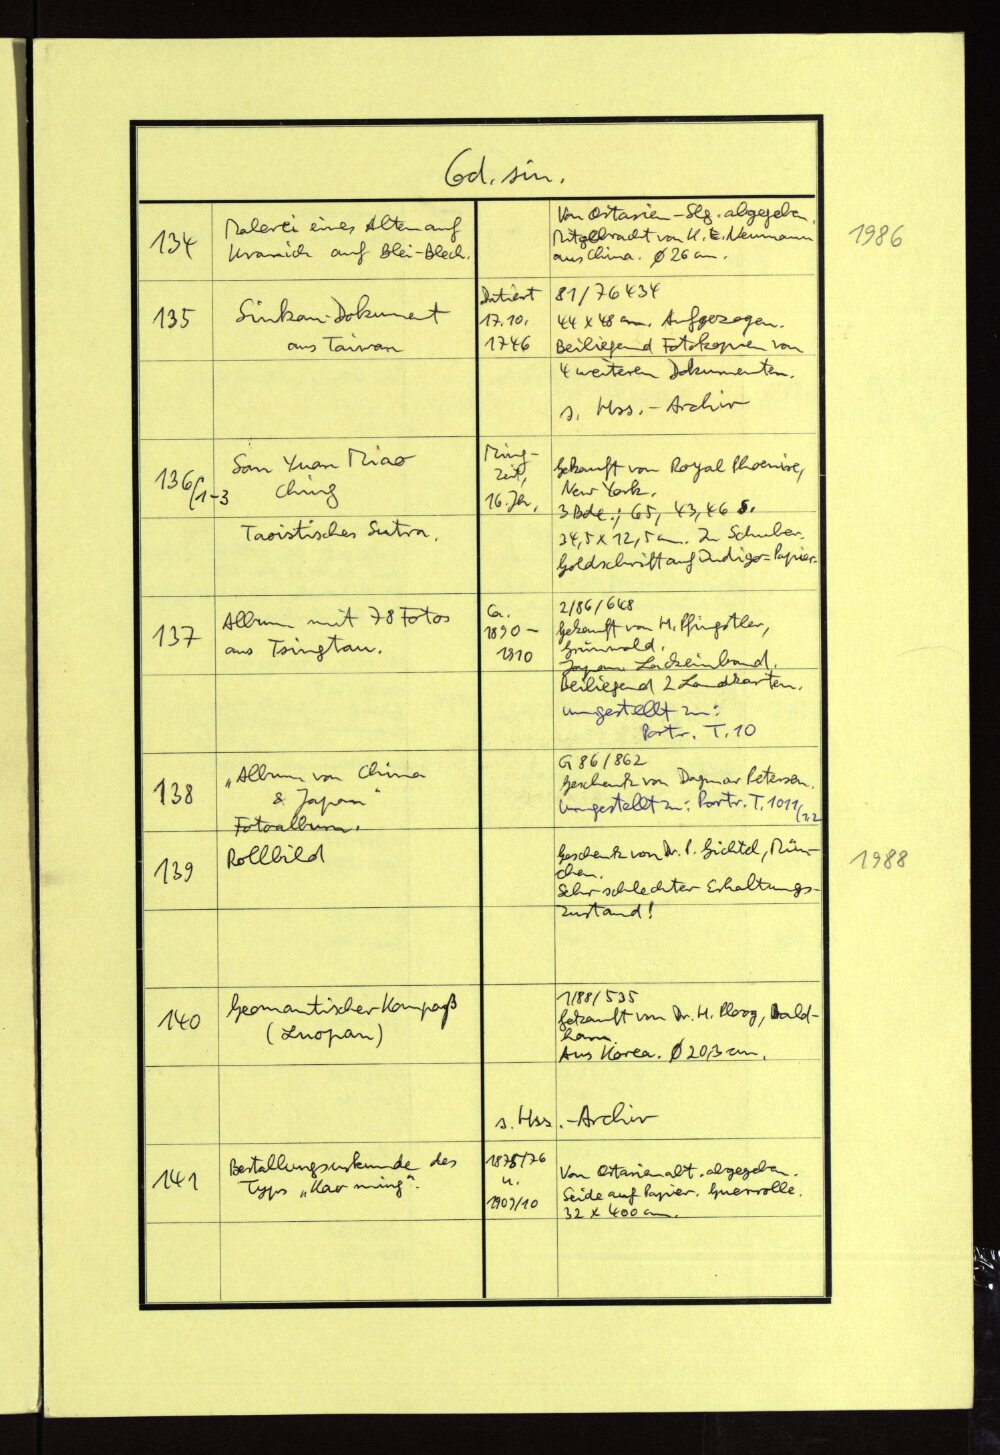 Cod. sin.
134
Malerei eines Alten auf
Kranich auf Blei-Blech.
Von Ostasien-Slg. abgegeben.
Mitgebracht von K. F. Neumann
aus China. Ø 26 cm.
1986
135
Sinkan-Dokument
aus Taiwan
Datiert
17.10.
1746
81/76434
44 x 48 cm. Aufgezogen.
Beiliegend Fotokopien von
4 weiteren Dokumenten.
s. Hss.-Archiv
136/1-3
San Yuan Miao
Ching
Taoistisches Sutra.
Ming-
Zeit,
16. Jh.
Gekauft von Royal Phoenixe,
New York.
3 Bde.; 65, 43, 46 S.
34,5 x 12,5 cm. In Schuber.
Goldschrift auf Indigo-Papier.
137
Album mit 78 Fotos
aus Tsingtau.
Ca.
1890 –
1910
2/86/648
Gekauft von M. Pfingstler,
Grünwald.
Japan. Lackeinband.
Beiliegend 2 Landkarten.
umgestellt zu:
Portr. T. 10
138
„Album von China
& Japan"
Fotoalbum.
G 86/862
Geschenk von Dagmar Petersen.
umgestellt zu: Portr. T. 1011/22
139
Rollbild
Geschenk von Dr. P. Gichtel, Mün-
chen.
Sehr schlechter Erhaltungs-
zustand!
1988
140
Geomantischer Kompaß
(Luopan)
1/88/535
Gekauft von Dr. H. Ploog, Bald-
ham.
Aus Korea. Ø 20,3 cm.
s. Hss.-Archiv
141
Bestallungsurkunde des
Typs „Kao ming".
1875/76
u.
1909/10
Von Ostasienabt. abgegeben.
Seide auf Papier. Querrolle.
32 x 400 cm.